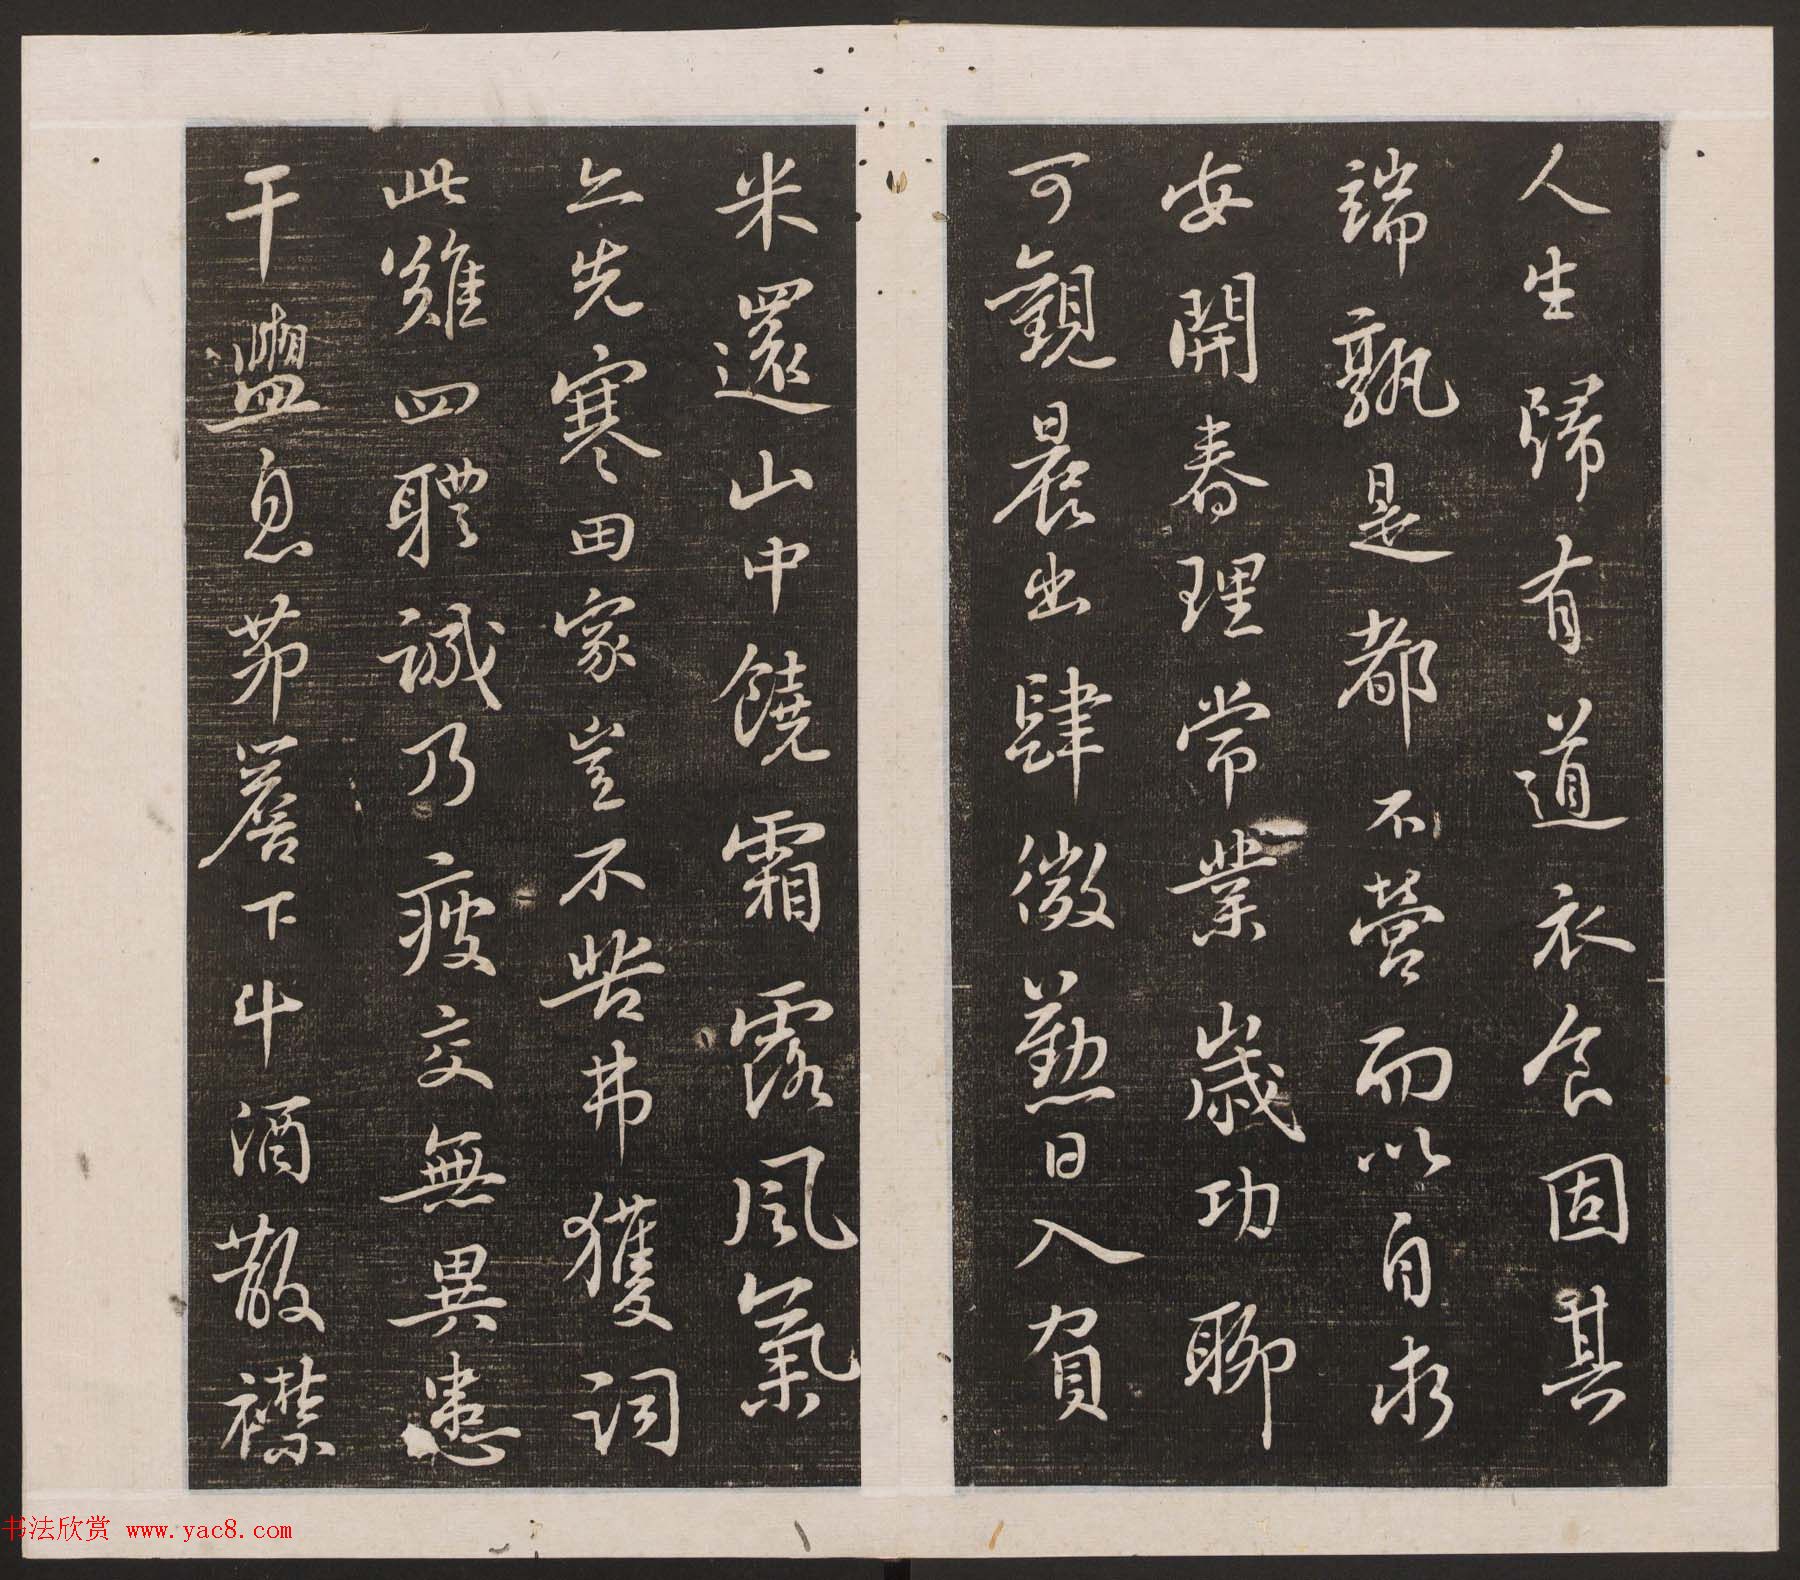 人生歸有道衣食固其
端孰是都不營而以自求
安開春理常業歲功聊
可觀晨出肆微勤日入負
米還山中饒霜露風氣
亦先寒田家豈不苦弗獲詞
此難四體誠乃疲交無異患
干盥息茆簷下斗酒散襟
书法欣赏 www.yac8.com